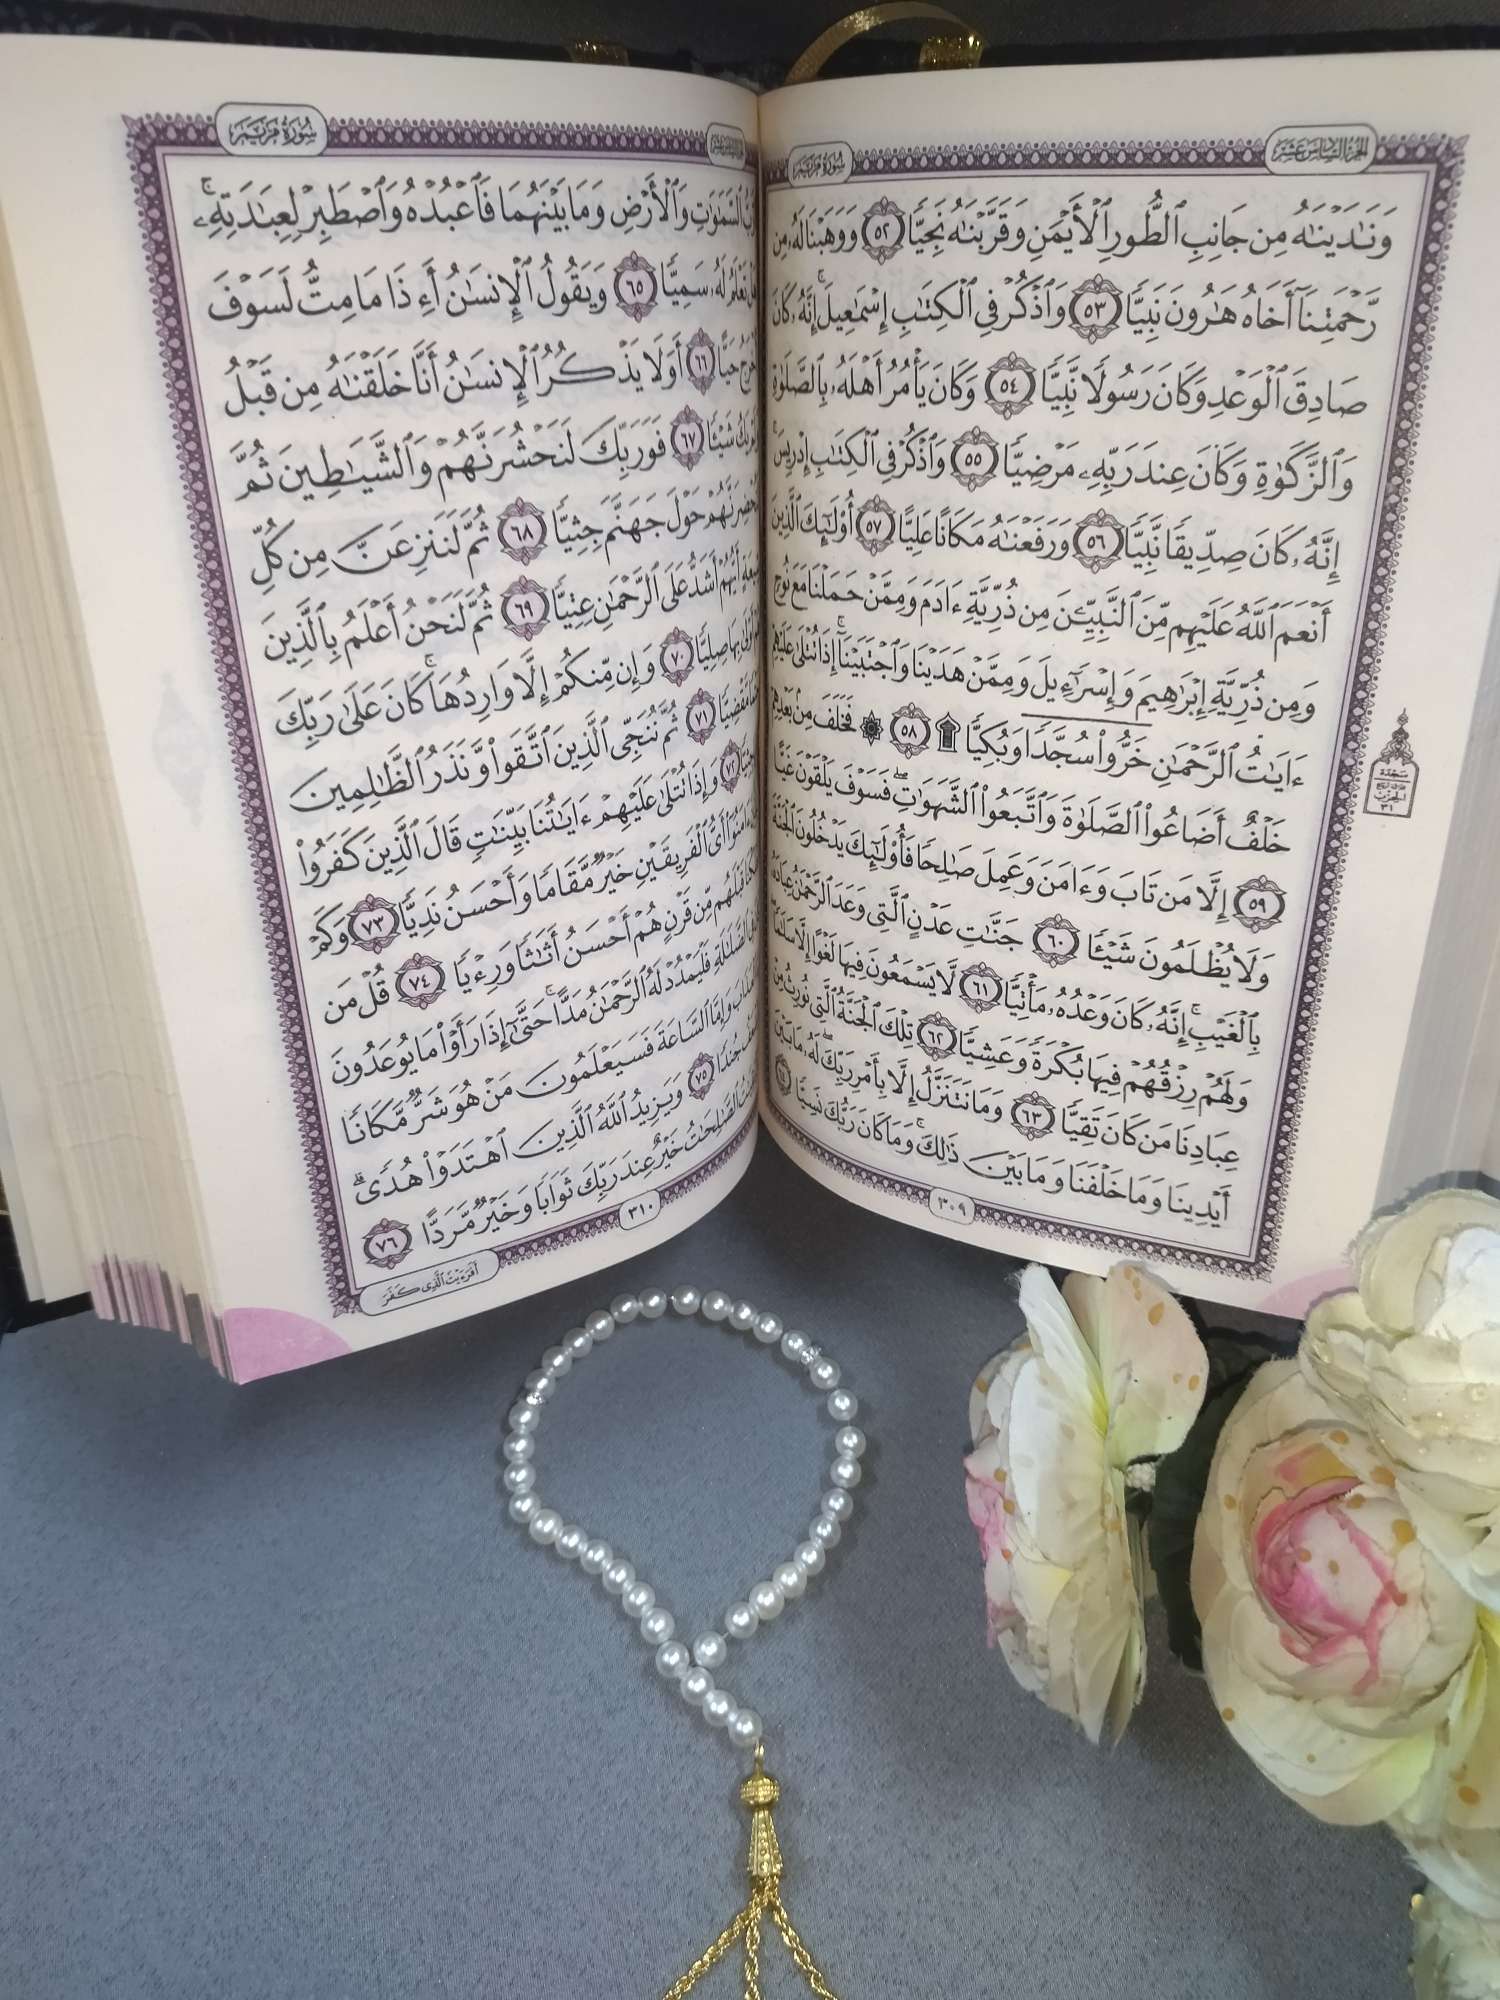 الجزء السادس عشر
سورة مريم
وَنَٰدَيْنَٰهُ مِن جَانِبِ ٱلطُّورِ ٱلْأَيْمَنِ وَقَرَّبْنَٰهُ نَجِيًّا ٥٢ وَوَهَبْنَا لَهُۥ مِن
رَّحْمَتِنَآ أَخَاهُ هَٰرُونَ نَبِيًّا ٥٣ وَٱذْكُرْ فِى ٱلْكِتَٰبِ إِسْمَٰعِيلَ ۚ إِنَّهُۥ كَانَ
صَادِقَ ٱلْوَعْدِ وَكَانَ رَسُولًا نَّبِيًّا ٥٤ وَكَانَ يَأْمُرُ أَهْلَهُۥ بِٱلصَّلَوٰةِ
وَٱلزَّكَوٰةِ وَكَانَ عِندَ رَبِّهِۦ مَرْضِيًّا ٥٥ وَٱذْكُرْ فِى ٱلْكِتَٰبِ إِدْرِيسَ ۚ
إِنَّهُۥ كَانَ صِدِّيقًا نَّبِيًّا ٥٦ وَرَفَعْنَٰهُ مَكَانًا عَلِيًّا ٥٧ أُو۟لَٰٓئِكَ ٱلَّذِينَ
أَنْعَمَ ٱللَّهُ عَلَيْهِم مِّنَ ٱلنَّبِيِّۦنَ مِن ذُرِّيَّةِ ءَادَمَ وَمِمَّنْ حَمَلْنَا مَعَ نُوحٍ
وَمِن ذُرِّيَّةِ إِبْرَٰهِيمَ وَإِسْرَٰٓءِيلَ وَمِمَّنْ هَدَيْنَا وَٱجْتَبَيْنَآ ۚ إِذَا تُتْلَىٰ عَلَيْهِمْ
ءَايَٰتُ ٱلرَّحْمَٰنِ خَرُّوا۟ سُجَّدًا وَبُكِيًّا ۩ ٥٨ ۞ فَخَلَفَ مِنۢ بَعْدِهِمْ
خَلْفٌ أَضَاعُوا۟ ٱلصَّلَوٰةَ وَٱتَّبَعُوا۟ ٱلشَّهَوَٰتِ ۖ فَسَوْفَ يَلْقَوْنَ غَيًّا
٥٩ إِلَّا مَن تَابَ وَءَامَنَ وَعَمِلَ صَٰلِحًا فَأُو۟لَٰٓئِكَ يَدْخُلُونَ ٱلْجَنَّةَ
وَلَا يُظْلَمُونَ شَيْـًٔا ٦٠ جَنَّٰتِ عَدْنٍ ٱلَّتِى وَعَدَ ٱلرَّحْمَٰنُ عِبَادَهُۥ
بِٱلْغَيْبِ ۚ إِنَّهُۥ كَانَ وَعْدُهُۥ مَأْتِيًّا ٦١ لَّا يَسْمَعُونَ فِيهَا لَغْوًا إِلَّا سَلَٰمًا ۖ
وَلَهُمْ رِزْقُهُمْ فِيهَا بُكْرَةً وَعَشِيًّا ٦٢ تِلْكَ ٱلْجَنَّةُ ٱلَّتِى نُورِثُ مِنْ
عِبَادِنَا مَن كَانَ تَقِيًّا ٦٣ وَمَا نَتَنَزَّلُ إِلَّا بِأَمْرِ رَبِّكَ ۖ لَهُۥ مَا بَيْنَ
أَيْدِينَا وَمَا خَلْفَنَا وَمَا بَيْنَ ذَٰلِكَ ۚ وَمَا كَانَ رَبُّكَ نَسِيًّا ٦٤
٣٠٩
سجدة
الحزب
٣١
سورة مريم
رَّبُّ ٱلسَّمَٰوَٰتِ وَٱلْأَرْضِ وَمَا بَيْنَهُمَا فَٱعْبُدْهُ وَٱصْطَبِرْ لِعِبَٰدَتِهِۦ ۚ
هَلْ تَعْلَمُ لَهُۥ سَمِيًّا ٦٥ وَيَقُولُ ٱلْإِنسَٰنُ أَءِذَا مَا مِتُّ لَسَوْفَ
أُخْرَجُ حَيًّا ٦٦ أَوَلَا يَذْكُرُ ٱلْإِنسَٰنُ أَنَّا خَلَقْنَٰهُ مِن قَبْلُ
وَلَمْ يَكُ شَيْـًٔا ٦٧ فَوَرَبِّكَ لَنَحْشُرَنَّهُمْ وَٱلشَّيَٰطِينَ ثُمَّ
لَنُحْضِرَنَّهُمْ حَوْلَ جَهَنَّمَ جِثِيًّا ٦٨ ثُمَّ لَنَنزِعَنَّ مِن كُلِّ
شِيعَةٍ أَيُّهُمْ أَشَدُّ عَلَى ٱلرَّحْمَٰنِ عِتِيًّا ٦٩ ثُمَّ لَنَحْنُ أَعْلَمُ بِٱلَّذِينَ
هُمْ أَوْلَىٰ بِهَا صِلِيًّا ٧٠ وَإِن مِّنكُمْ إِلَّا وَارِدُهَا ۚ كَانَ عَلَىٰ رَبِّكَ
حَتْمًا مَّقْضِيًّا ٧١ ثُمَّ نُنَجِّى ٱلَّذِينَ ٱتَّقَوا۟ وَّنَذَرُ ٱلظَّٰلِمِينَ
جِثِيًّا ٧٢ وَإِذَا تُتْلَىٰ عَلَيْهِمْ ءَايَٰتُنَا بَيِّنَٰتٍ قَالَ ٱلَّذِينَ كَفَرُوا۟
ءَامَنُوٓا۟ أَىُّ ٱلْفَرِيقَيْنِ خَيْرٌ مَّقَامًا وَأَحْسَنُ نَدِيًّا ٧٣ وَكَمْ
أَهْلَكْنَا قَبْلَهُم مِّن قَرْنٍ هُمْ أَحْسَنُ أَثَٰثًا وَرِءْيًا ٧٤ قُلْ مَن
ٱلضَّلَٰلَةِ فَلْيَمْدُدْ لَهُ ٱلرَّحْمَٰنُ مَدًّا ۚ حَتَّىٰٓ إِذَا رَأَوْا۟ مَا يُوعَدُونَ
ٱلْعَذَابَ وَإِمَّا ٱلسَّاعَةَ فَسَيَعْلَمُونَ مَنْ هُوَ شَرٌّ مَّكَانًا
جُندًا ٧٥ وَيَزِيدُ ٱللَّهُ ٱلَّذِينَ ٱهْتَدَوْا۟ هُدًى ۗ
ٱلصَّٰلِحَٰتُ خَيْرٌ عِندَ رَبِّكَ ثَوَابًا وَخَيْرٌ مَّرَدًّا ٧٦
٣١٠
أفرءيت الذي كفر